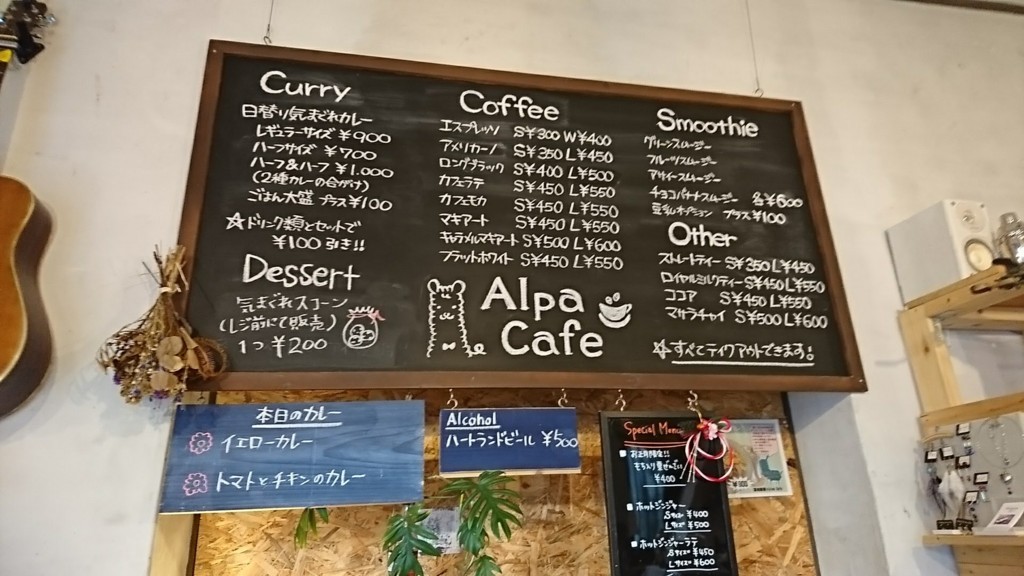 Curry
日替り気まぐれカレー
レギュラーサイズ ¥900
ハーフサイズ ¥700
ハーフ&ハーフ ¥1,000
(2種カレーの合がけ)
ごはん大盛 プラス¥100
☆ドリンク類とセットで
¥100引き!!
Dessert
気まぐれスコーン
(レジ前にて販売)
1つ ¥200
Coffee
エスプレッソ S¥300 W¥400
アメリカーノ S¥350 L¥450
ロングブラック S¥400 L¥500
カフェラテ S¥450 L¥550
カフェモカ S¥450 L¥550
マキアート S¥450 L¥550
キャラメルマキアート S¥500 L¥600
フラットホワイト S¥450 L¥550
Alpa
Cafe
Smoothie
グリーンスムージー
フルーツスムージー
アサイースムージー
チョコバナナスムージー 各¥600
豆乳オプション プラス¥100
Other
ストレートティー S¥350 L¥450
ロイヤルミルクティー S¥450 L¥550
ココア S¥450 L¥550
マサラチャイ S¥500 L¥600
☆すべてテイクアウトできます!
本日のカレー
イエローカレー
トマトとチキンのカレー
Alcohol
ハートランドビール ¥500
Special Menu
お正月限定!!
もち入り栗ぜんざい
¥400
ホットジンジャー
Sサイズ ¥400
Lサイズ ¥500
ホットジンジャーラテ
Sサイズ ¥450
Lサイズ ¥600